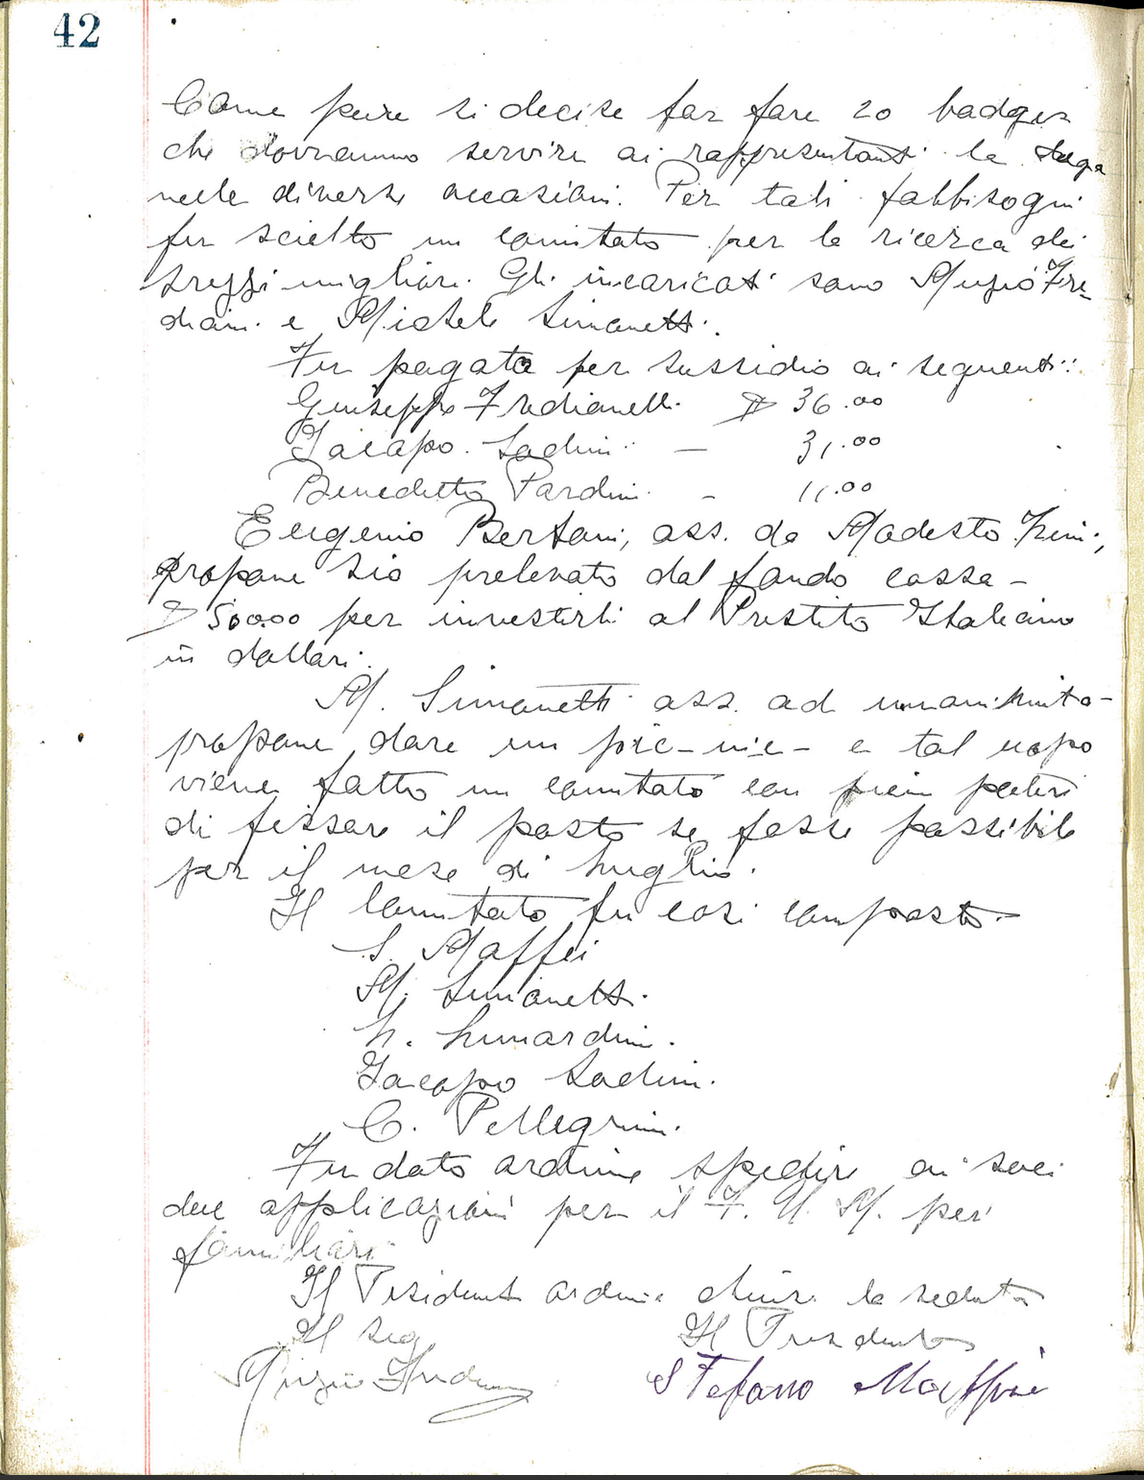 42
Come pure si decise far fare 20 badges
che dovranno servire ai rappresentanti la Loga
nelle diverse occasioni. Per tali fabbisogni
fu scielto un comitato per la ricerca dei
prezzi migliori. Gli incaricati sono Muzio Fre-
diani e Michele Simonetti.
Fu pagato per sussidio ai seguenti:
Giuseppe Fredianelli $ 36.00
Jacapo Sodini - 31.00
Benedetto Pardini - 11.00
Eugenio Bertani, ass. da Modesto
propone sia prelevato dal fondo cassa -
$ 500.00 per investirli al Prestito Italiano
in dollari.
M. Simonetti ass. ad unanimita -
propone dare un pic-nic - e tal uopo
viene fatto un comitato con pieni poteri
di fissare il posto se fosse possibile
per il mese di Luglio.
Il Comitato fu cosi composto -
S. Maffei
M. Simonetti.
L. Lunardini.
Jacopo Sodini.
C. Pellegrini.
Fu dato ordine spedire ai soci
due applicazioni per il F. U. M. per
familiari
Il Presidente ordina chiusa la seduta
Il Seg Il Presidente
Muzio Frediani Stefano Maffei